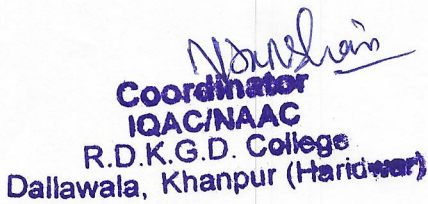 Coordinator
IQAC/NAAC
R.D.K.G.D. College
Dallawala, Khanpur (Haridwar)